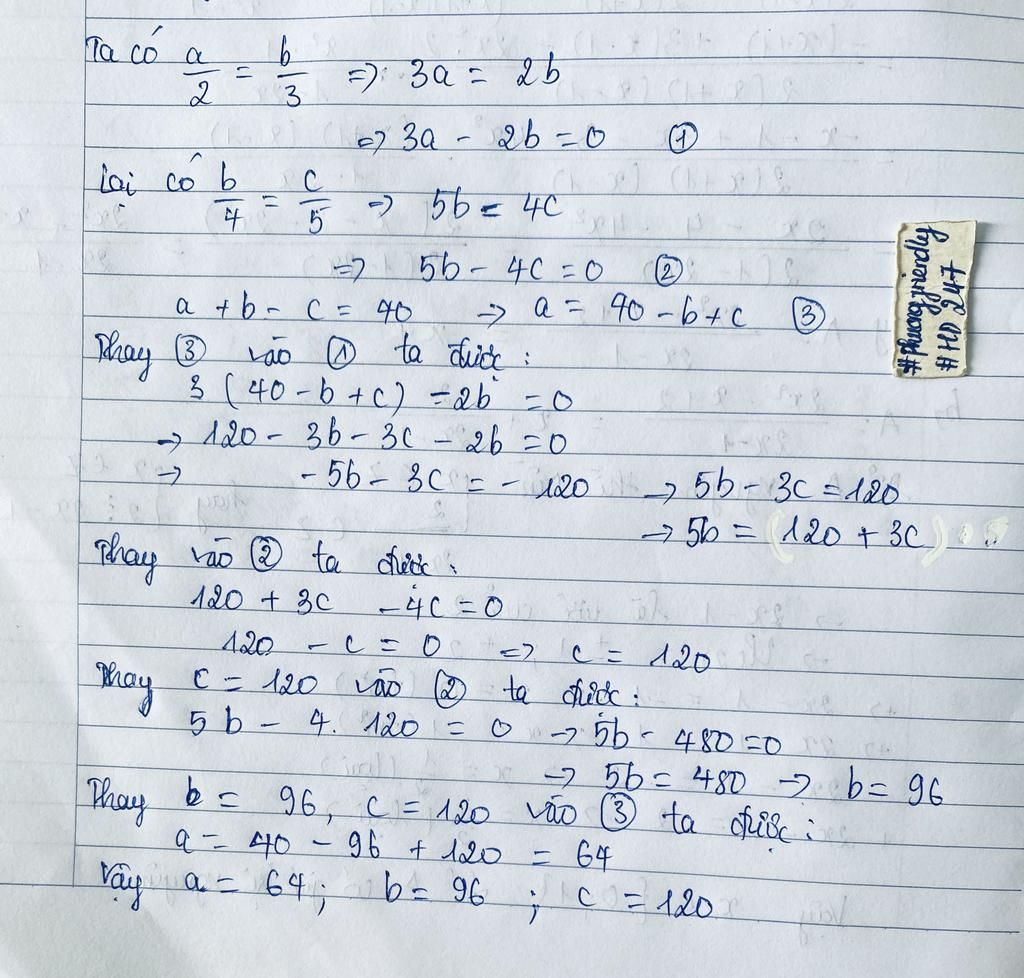 Ta có a/2 = b/3 => 3a = 2b
=> 3a - 2b = 0 ①
Lại có b/4 = c/5 => 5b = 4c
=> 5b - 4c = 0 ②
a + b - c = 40 -> a = 40 - b + c ③
Thay ③ vào ① ta được:
3 (40 - b + c) - 2b = 0
-> 120 - 3b - 3c - 2b = 0
-> - 5b - 3c = - 120 -> 5b - 3c = 120
-> 5b = (120 + 3c)
Thay vào ② ta được:
120 + 3c - 4c = 0
120 - c = 0 => c = 120
Thay c = 120 vào ② ta được:
5b - 4. 120 = 0 -> 5b - 480 = 0
-> 5b = 480 -> b = 96
Thay b = 96, c = 120 vào ③ ta được:
a = 40 - 96 + 120 = 64
Vậy a = 64; b = 96 ; c = 120